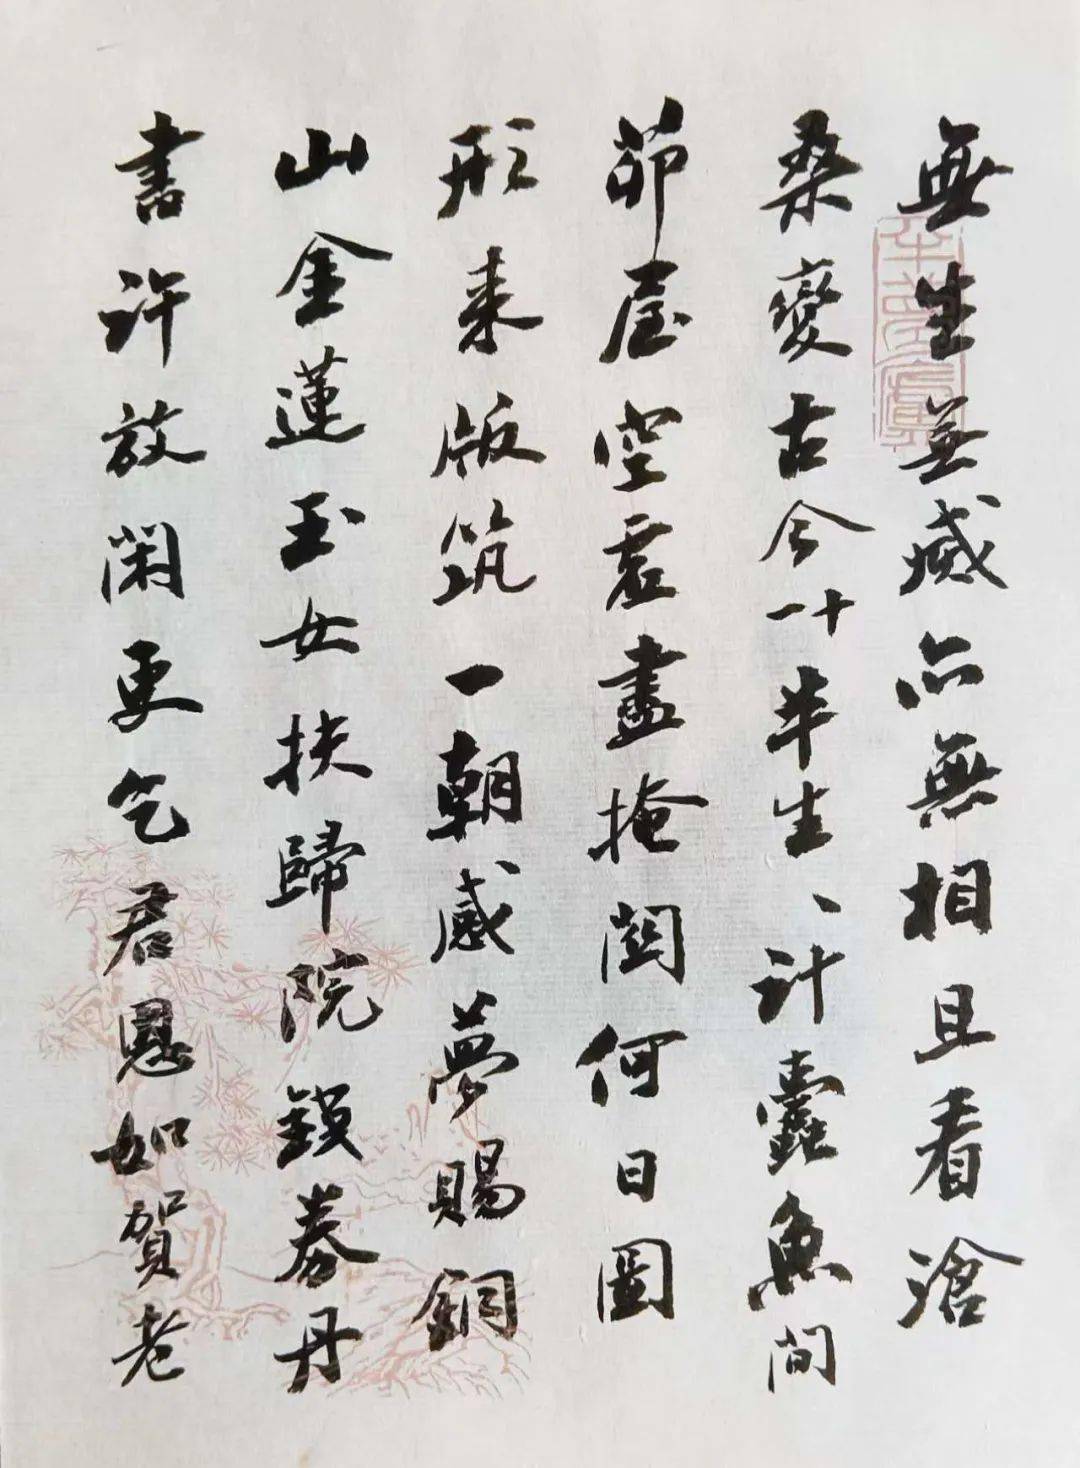 無生無滅亦無相且看滄
桑變古今一十半生、計蠹魚間
茆屋空虛盡掩関何日圖
形来版筑一朝感夢賜銅
山金蓮玉女扶歸院鐵券丹
書許放閑更乞君恩如賀老